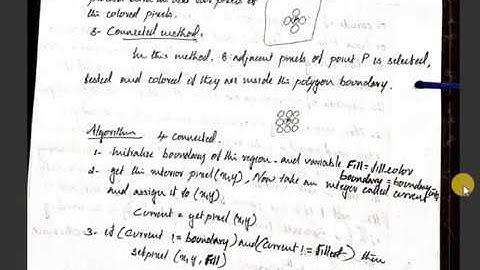 the colored pixels.
8- Connected method.
In this method, 8 adjacent pixels of point P is selected,
tested and colored if they are inside the polygon boundary.
Algorithm 4 connected.
1- Initialize boundary of the region. and variable Fill = fill.color
boundary = boundary
2- get the interior pixel (x,y), Now take an integer called current
and assign it to (x,y)
Current = getpixel (x,y)
3- if (current != boundary) and (current != fill) then
setpixel (x,y, Fill)